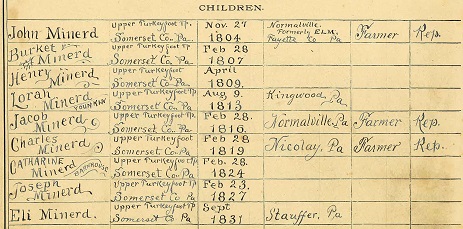 CHILDREN.
John Minerd Upper Turkeyfoot Tp. Somerset Co. Pa Nov. 27 1804 Normalville. Formerly ELM. Fayette Co Pa Farmer Rep.
Burket Minerd Upper Turkeyfoot Tp Somerset Co. Pa Feb 28 1807
Henry Minerd Upper Turkeyfoot Somerset Co. Pa April 1809.
Lorah Minerd YOUNKIN Upper Turkeyfoot Tp. Somerset Co Pa Aug 9. 1813 Kingwood Pa
Jacob Minerd Upper Turkeyfoot Tp Somerset Co. Pa Feb 28. 1816. Normalville Pa Farmer Rep.
Charles Minerd Upper Turkeyfoot Tp Somerset Co. Pa Feb 28 1819 Nicolay, Pa Farmer Rep.
CATHARINE Minerd Upper Turkeyfoot Tp. Somerset Co Pa Feb. 28. 1824
Joseph Minerd Upper Turkeyfoot Tp. Somerset Co Pa Feb 23, 1827
Eli Minerd. Upper Turkeyfoot Tp Somerset Co Pa Sept 1831 Stauffer, Pa